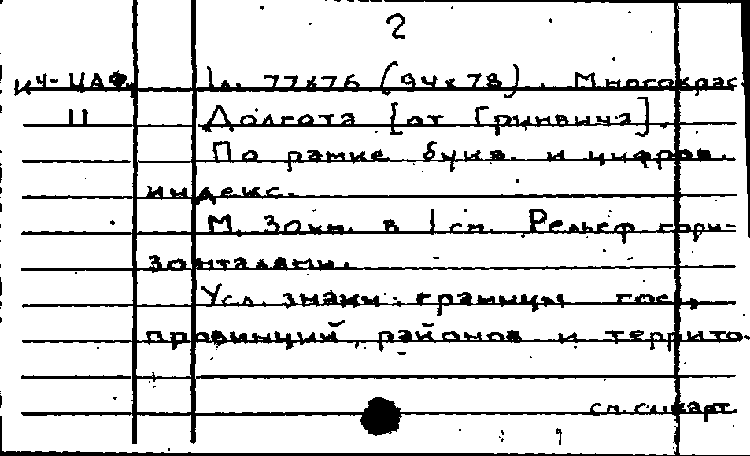 2
ИЧ-ЦАФ. 1л. 77х76 (94х78). Многокрас-
11 Долгота [от Гринвича].
По рамке букв. и цифров.
индекс.
М. 30км. в 1 см. Рельеф гори-
зонталями.
Усл. знаки: границы гос.,
провинций, районов и террито-
см. сл. карт.